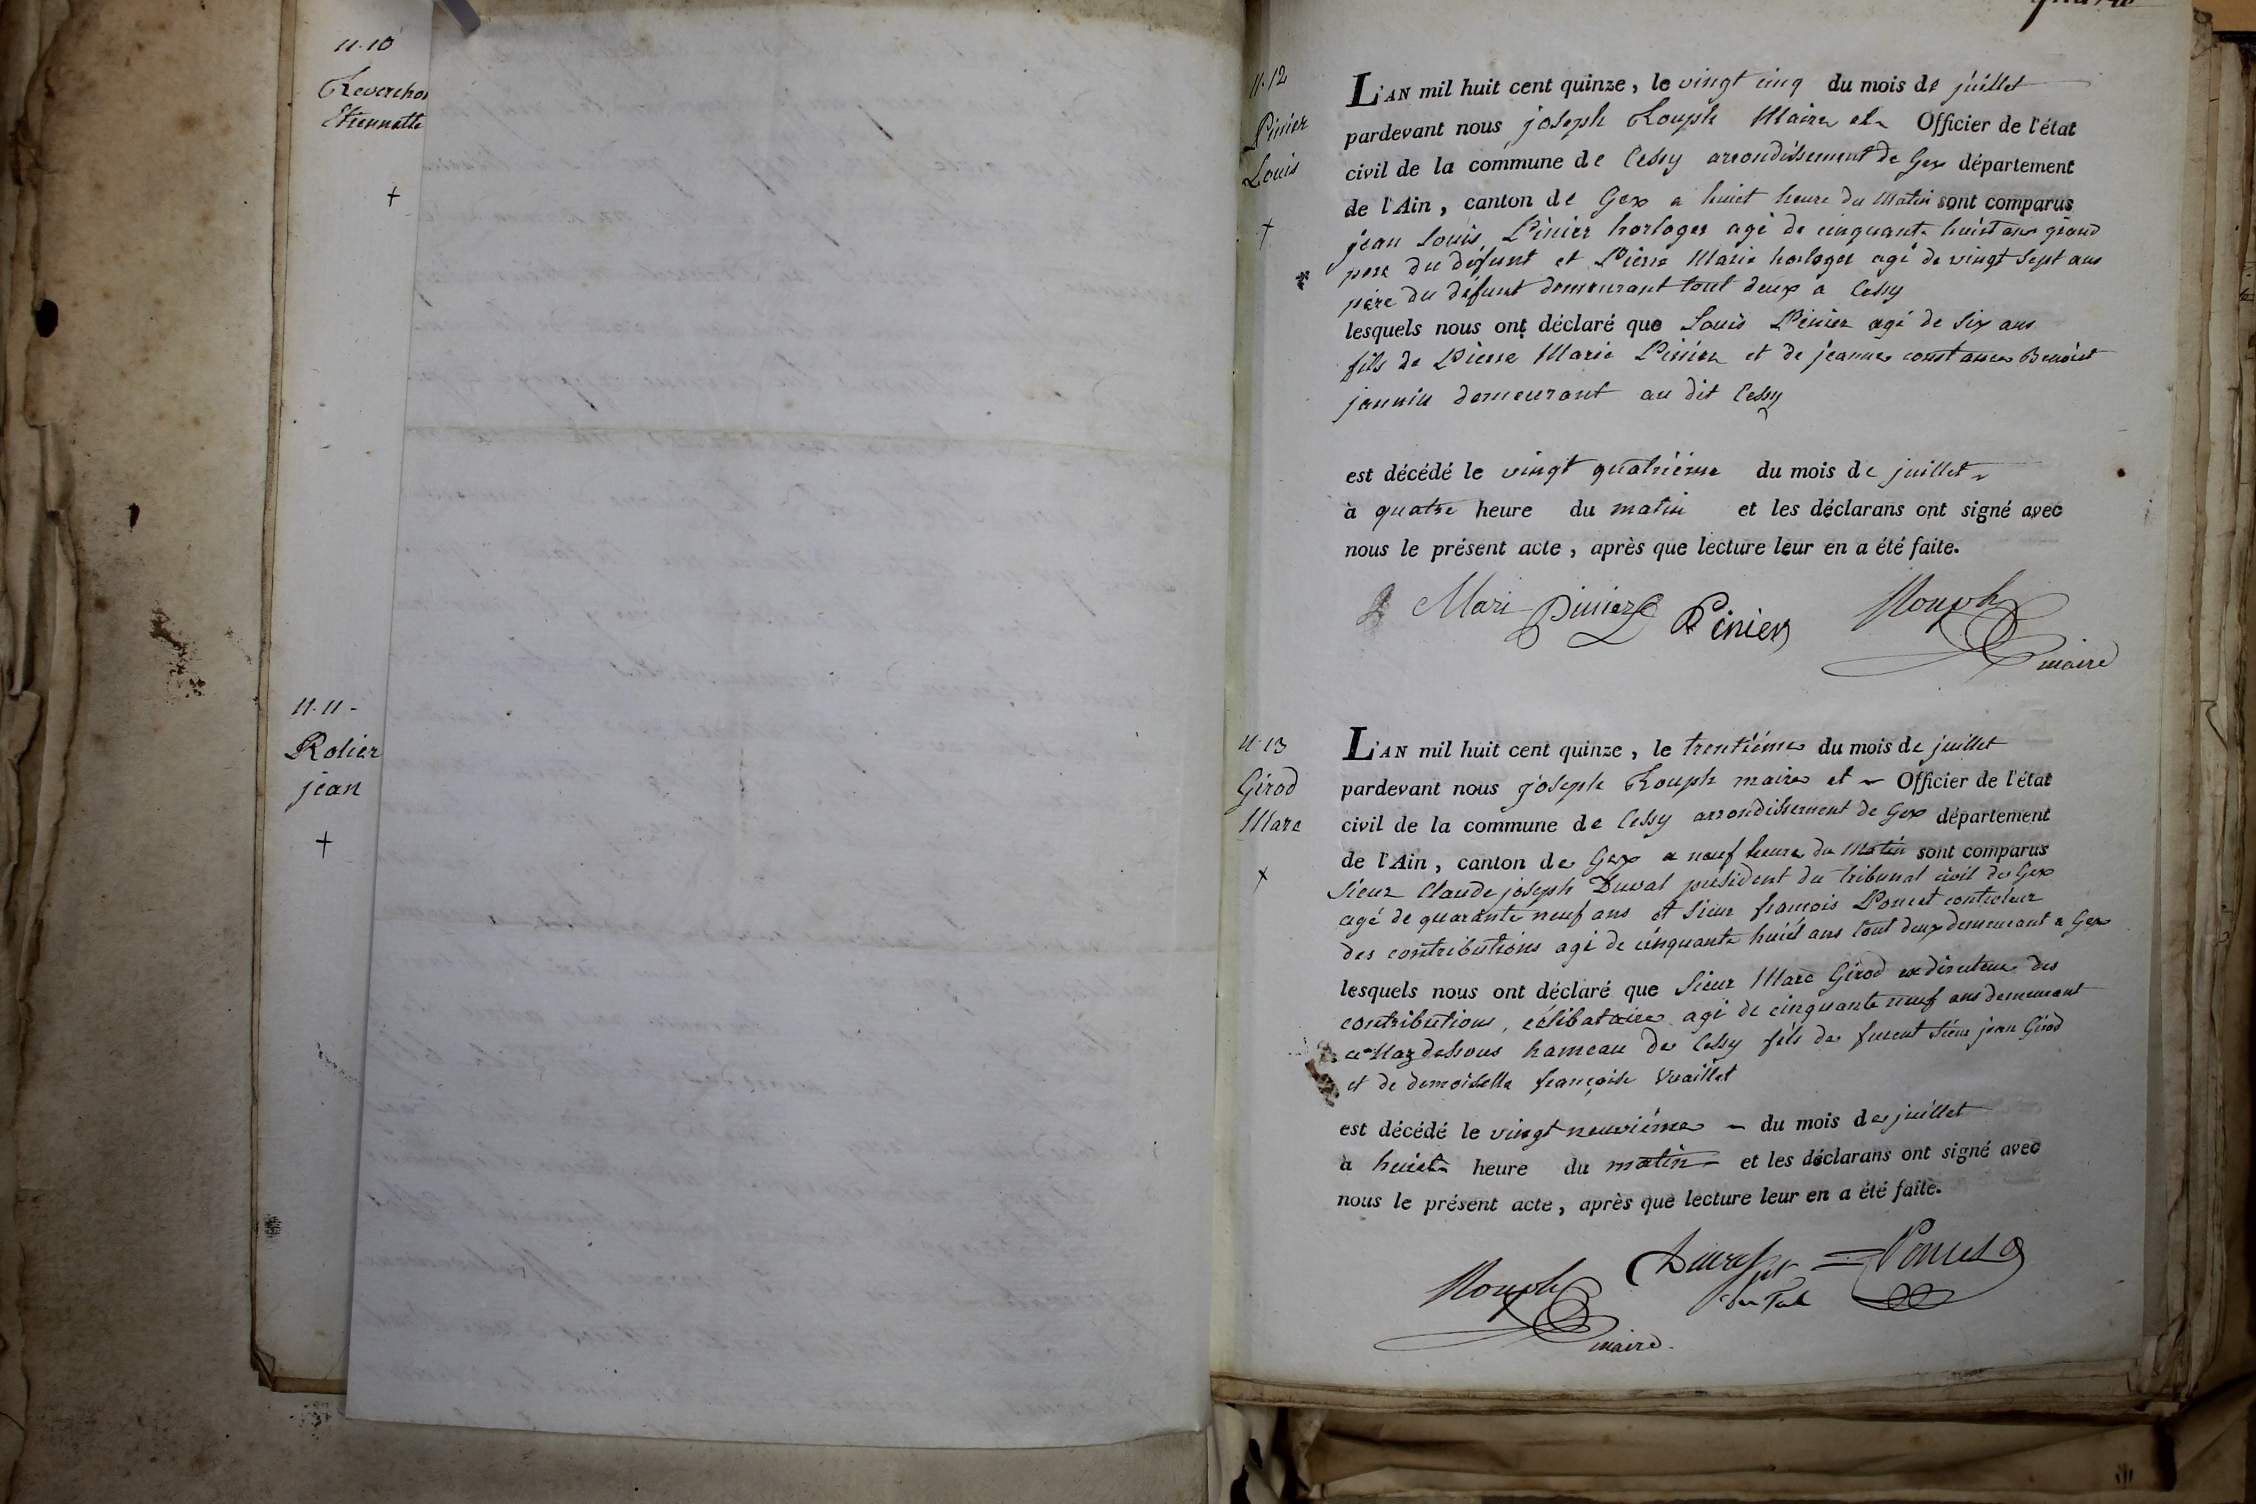 n. 10
Reverchon
Etiennette
n. 11 -
Rolier
jean
n. 12
Pinier
Louis
L'AN mil huit cent quinze, le vingt cinq du mois de juillet
pardevant nous joseph Rouph Maire et Officier de l'état
civil de la commune de Cessy arrondissement de Gex département
de l'Ain, canton de Gex a huict heure du Matin sont comparus
jean Louis Pinier horloger agé de cinquante huict ans grand
pere du défunt et Pierre Marie horloger agé de vingt sept ans
père du défunt demeurant tout deux a Cessy
lesquels nous ont déclaré que Louis Pinier agé de six ans
fils de Pierre Marie Pinier et de jeanne constance Benoist
jannin demeurant au dit Cessy
est décédé le vingt quatriéme du mois de juillet
à quatre heure du matin et les déclarans ont signé avec
nous le présent acte, après que lecture leur en a été faite.
Mari Pinier Pinier Rouph
maire
n. 13
Girod
Marc
L'AN mil huit cent quinze, le trentiéme du mois de juillet
pardevant nous joseph Rouph maire et Officier de l'état
civil de la commune de Cessy arrondissement de Gex département
de l'Ain, canton de Gex a neuf heure du Matin sont comparus
Sieur Claude joseph Duval président du tribunal civil de Gex
agé de quarante neuf ans et Sieur francois Poncet controleur
des contributions agé de cinquante huict ans tout deux demeurant a Gex
lesquels nous ont déclaré que Sieur Marc Girod ex directeur des
contributions, célibataire agé de cinquante neuf ans demeurant
a dessous hameau de Cessy fils de furent Sieur jean Girod
et de demoiselle françoise Vuaillet
est décédé le vingt neuviéme du mois de juillet
à huict heure du matin et les déclarans ont signé avec
nous le présent acte, après que lecture leur en a été faite.
Rouph Duval Poncet
maire.